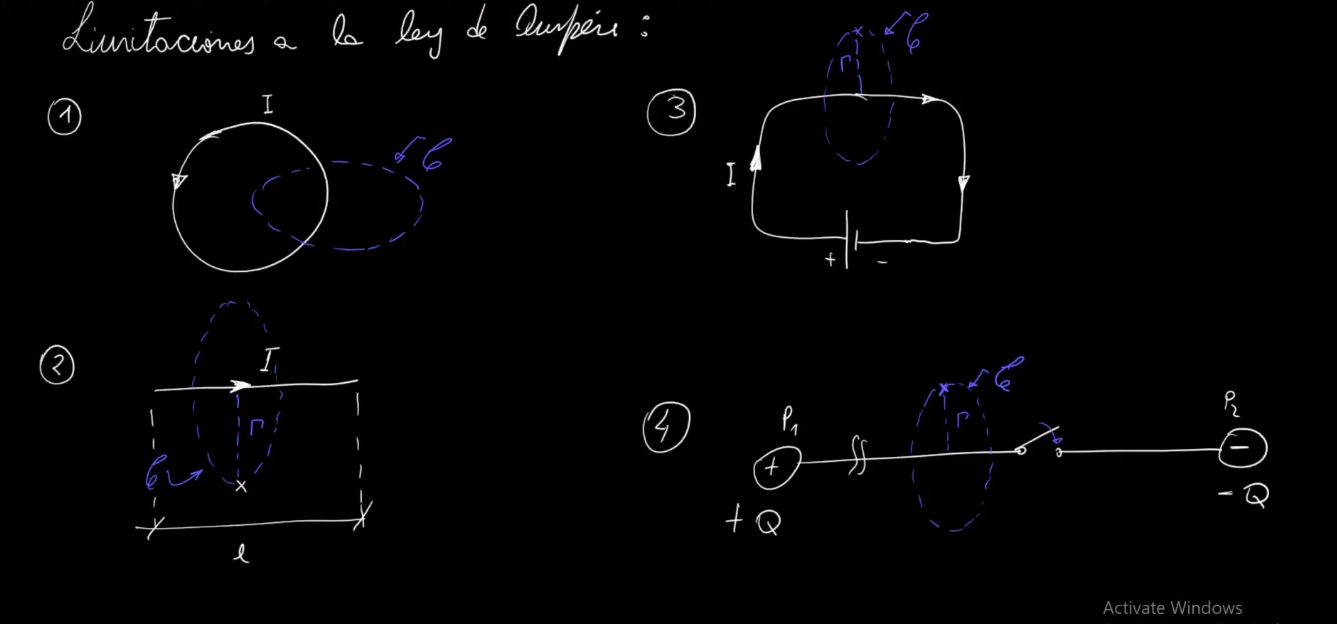 Limitaciones a la ley de Ampère :
1
I
C
2
I
r
C
l
3
C
r
I
+ -
4
C
r
P1
P2
+
-
+ Q
- Q
Activate Windows